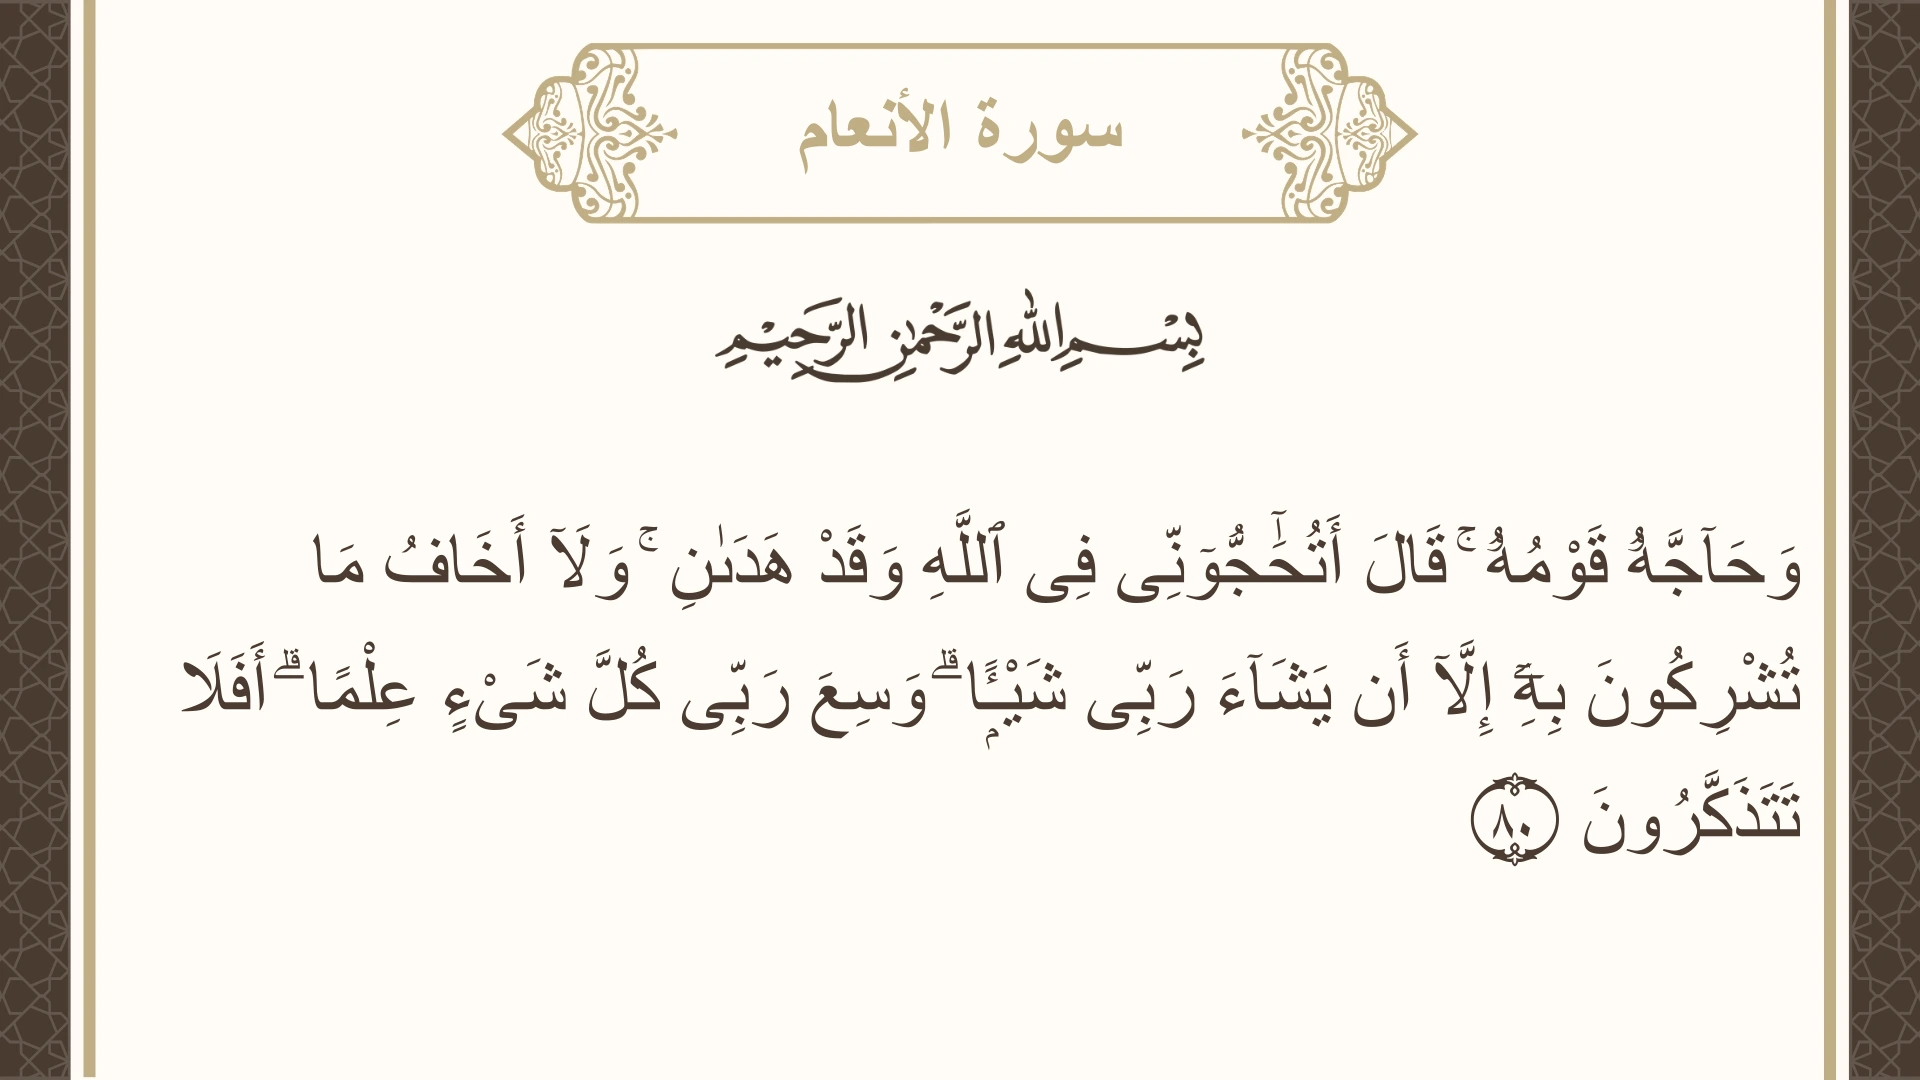 سورة الأنعام
بِسْمِ اللهِ الرَّحْمٰنِ الرَّحِيْمِ
وَحَآجَّهُۥ قَوْمُهُۥ ۚ قَالَ أَتُحَٰٓجُّوٓنِّى فِى ٱللَّهِ وَقَدْ هَدَىٰنِ ۚ وَلَآ أَخَافُ مَا
تُشْرِكُونَ بِهِۦٓ إِلَّآ أَن يَشَآءَ رَبِّى شَيْـًۭٔا ۗ وَسِعَ رَبِّى كُلَّ شَىْءٍ عِلْمًا ۗ أَفَلَا
تَتَذَكَّرُونَ ٨٠